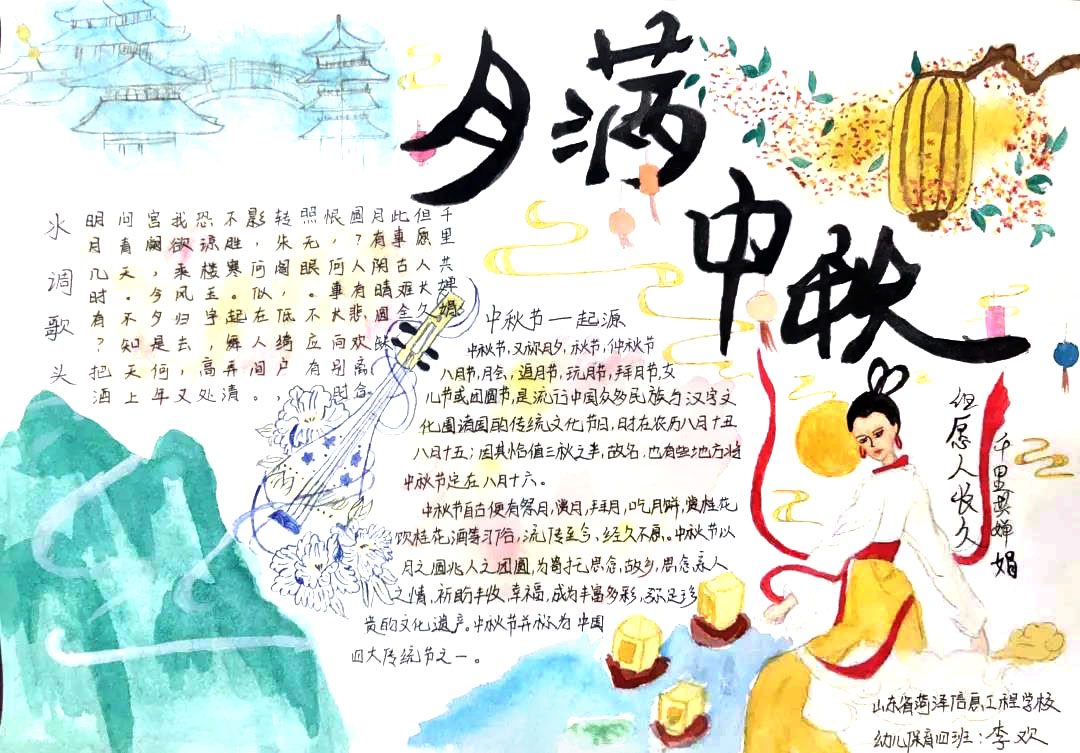 月满
中秋
水调歌头
明月几时有?把酒
问青天。不知天上
宫阙,今夕是何年
我欲乘风归去,又
恐琼楼玉宇,高处
不胜寒。起舞弄清
影,何似在人间。
转朱阁,低绮户,
照无眠。不应有,
恨,何事长向别时
圆?人有悲欢离合
月有阴晴圆缺
此事古难全
但原人长久
千里共婵娟
中秋节—起源
中秋节,又称月夕,秋节,仲秋节
八月节,月会,追月节,玩月节,拜月节,女
儿节或团圆节,是流行中国众多民族与汉字文
化圈诸国的传统文化节日,时在农历八月十五
八月十五;因其恰值三秋之半,故名,也有些地方将
中秋节定在八月十六。
中秋节自古便有祭月,赏月,拜月,吃月饼,赏桂花
饮桂花酒等习俗,流传至今,经久不息。中秋节以
月之圆兆人之团圆,为寄托思念,故乡,思念亲人
之情,祈盼丰收、幸福,成为丰富多彩,弥足珍
贵的文化遗产。中秋节并称为中国
四大传统节之一。
但愿人长久
千里共婵娟
山东省菏泽信息工程学校
幼儿保育四班:李欢